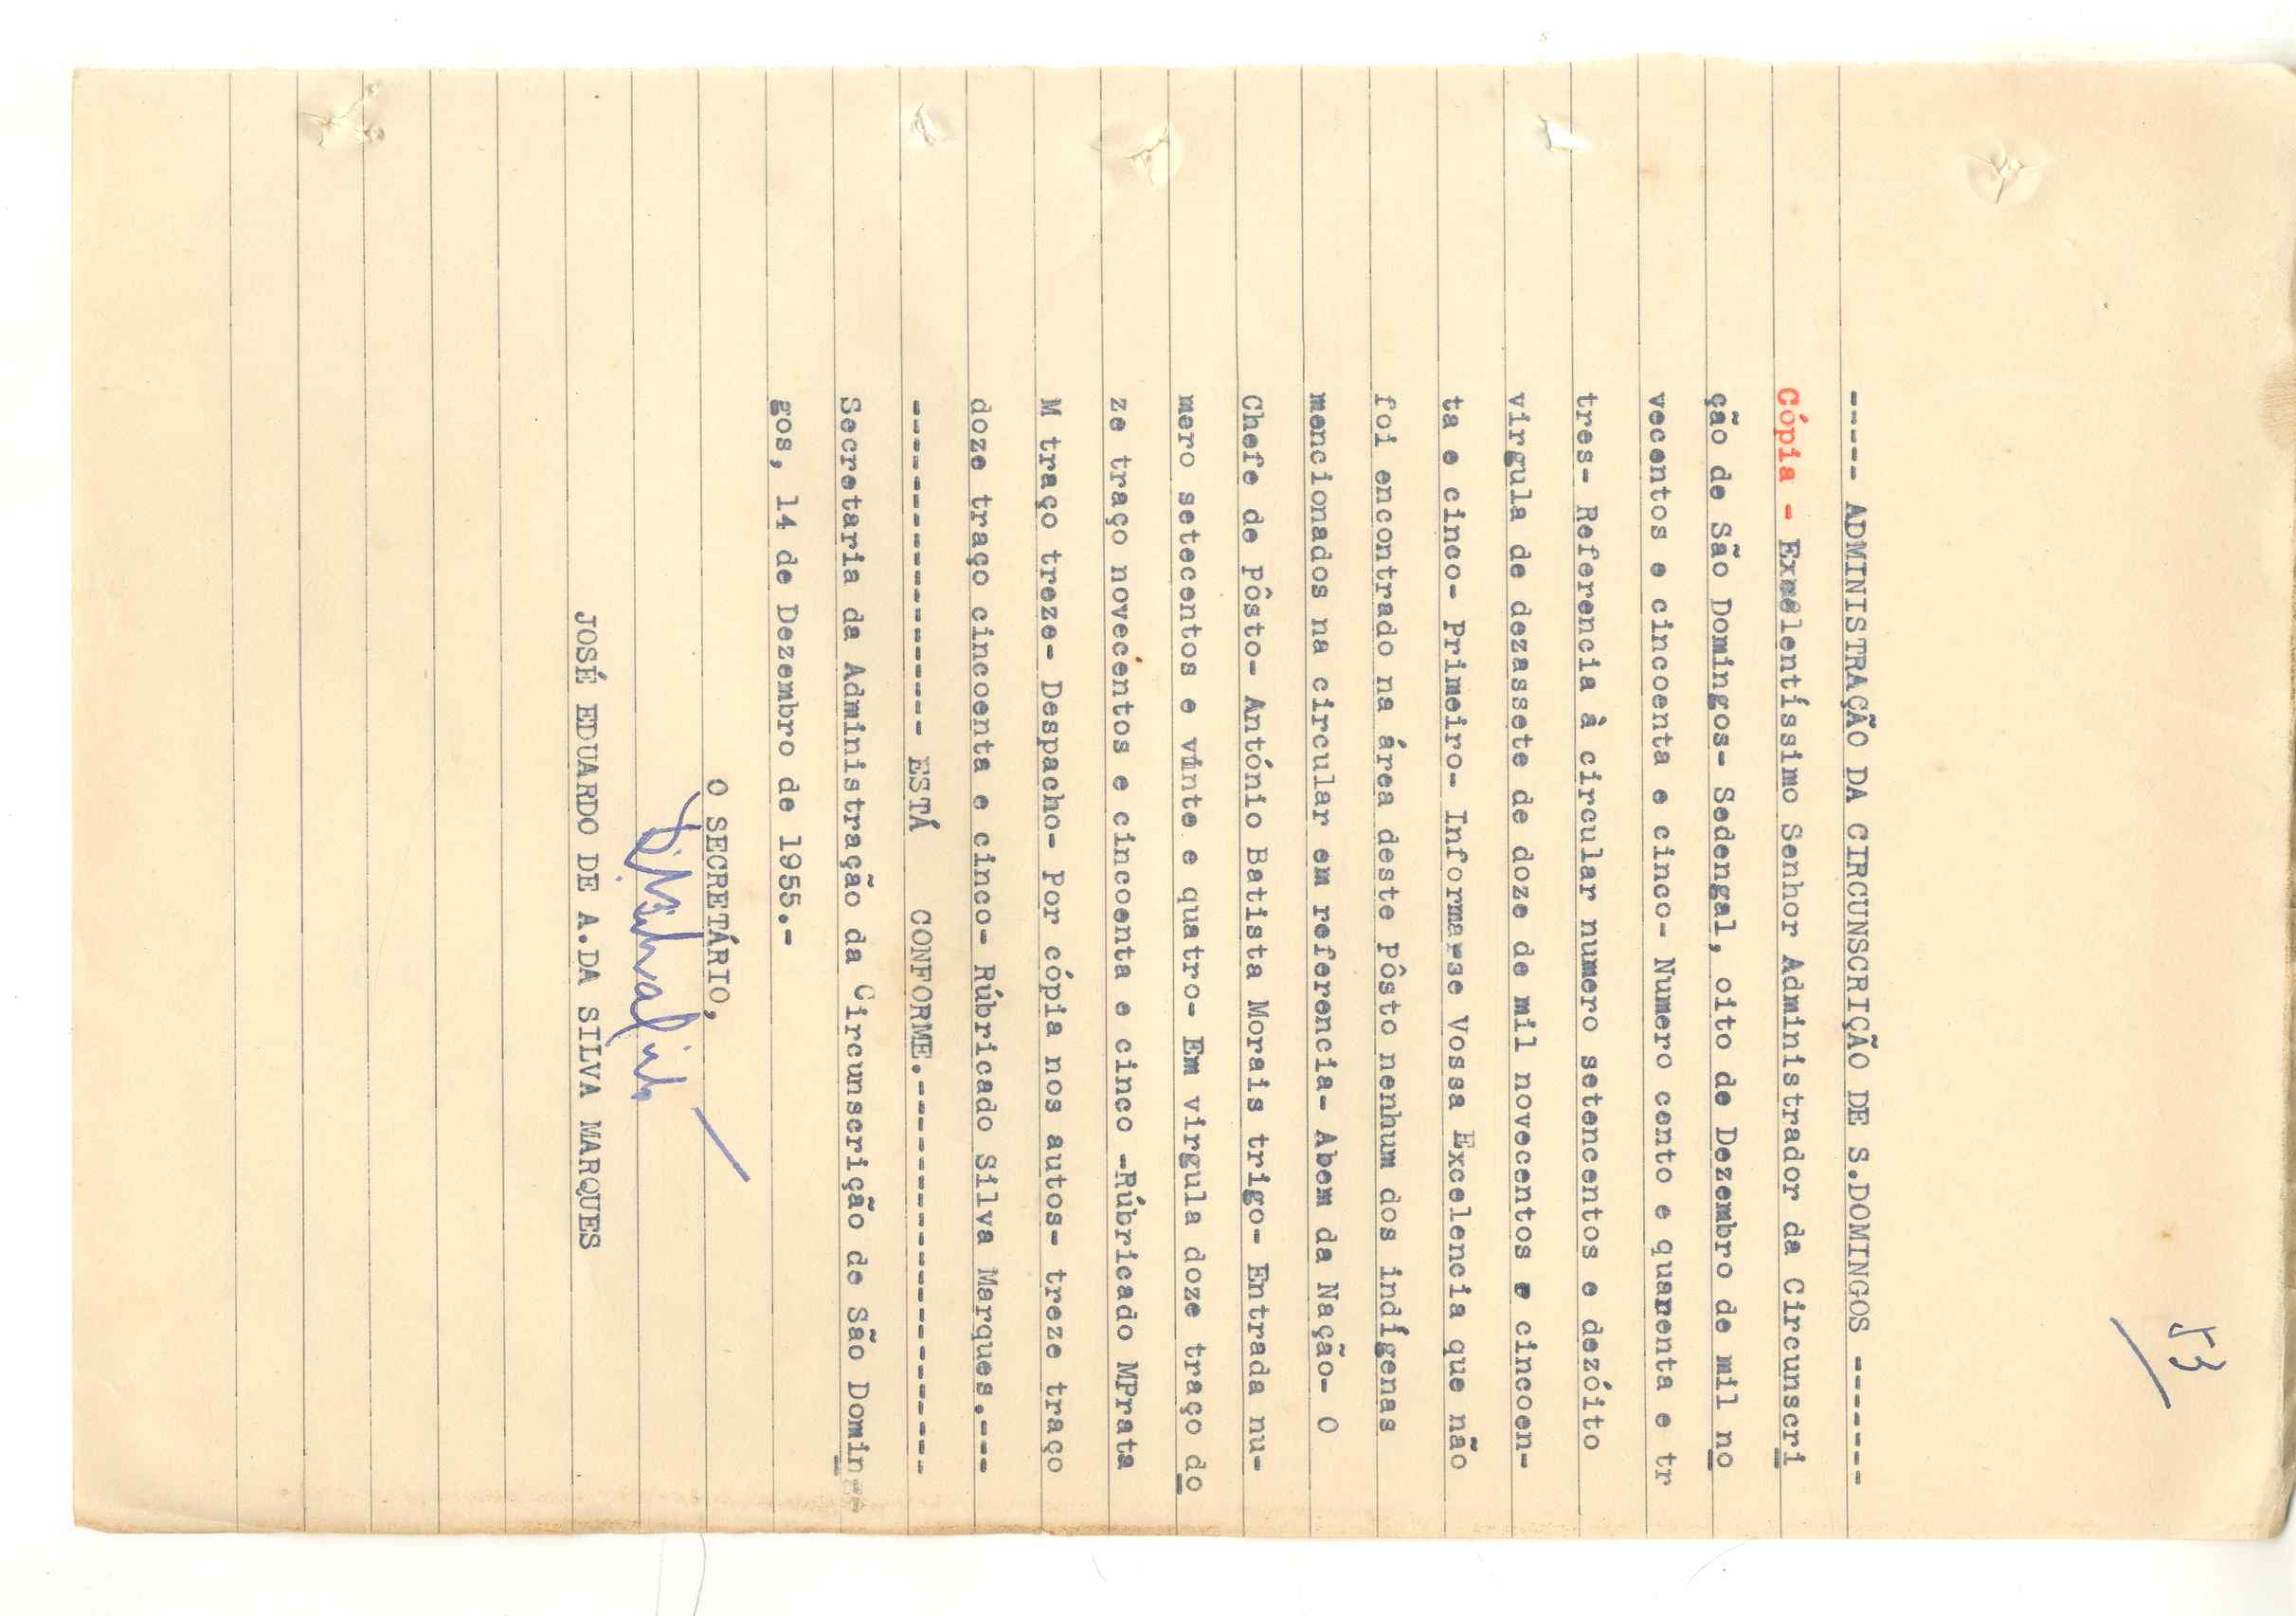 53
----- ADMINISTRAÇÃO DA CIRCUNSCRIÇÃO DE S.DOMINGOS -------
Cópia - Exmêlentíssimo Senhor Administrador da Circunscri
ção de São Domingos- Sedengal, oito de Dezembro de mil no
vecentos e cincoenta e cinco- Numero cento e quarenta e tr
tres- Referencia à circular numero setencentos e dezóito
virgula de dezassete de doze de mil novecentos e cincoen-
ta e cinco- Primeiro- Informa-se Vossa Excelencia que não
foi encontrado na área deste Pôsto nenhum dos indígenas
mencionados na circular em referencia- Abem da Nação- O
Chefe de Pôsto- António Batista Morais trigo- Entrada nu-
mero setecentos e vinte e quatro- Em virgula doze traço do
ze traço novecentos e cincoenta e cinco -Rúbricado MPrata
M traço treze- Despacho- Por cópia nos autos- treze traço
doze traço cincoenta e cinco- Rúbricado Silva Marques.---
---------------------- ESTÁ CONFORME.--------------------------
Secretaria da Administração da Circunscrição de São Domin-
gos, 14 de Dezembro de 1955.-
O SECRETÁRIO,
JOSÉ EDUARDO DE A.DA SILVA MARQUES